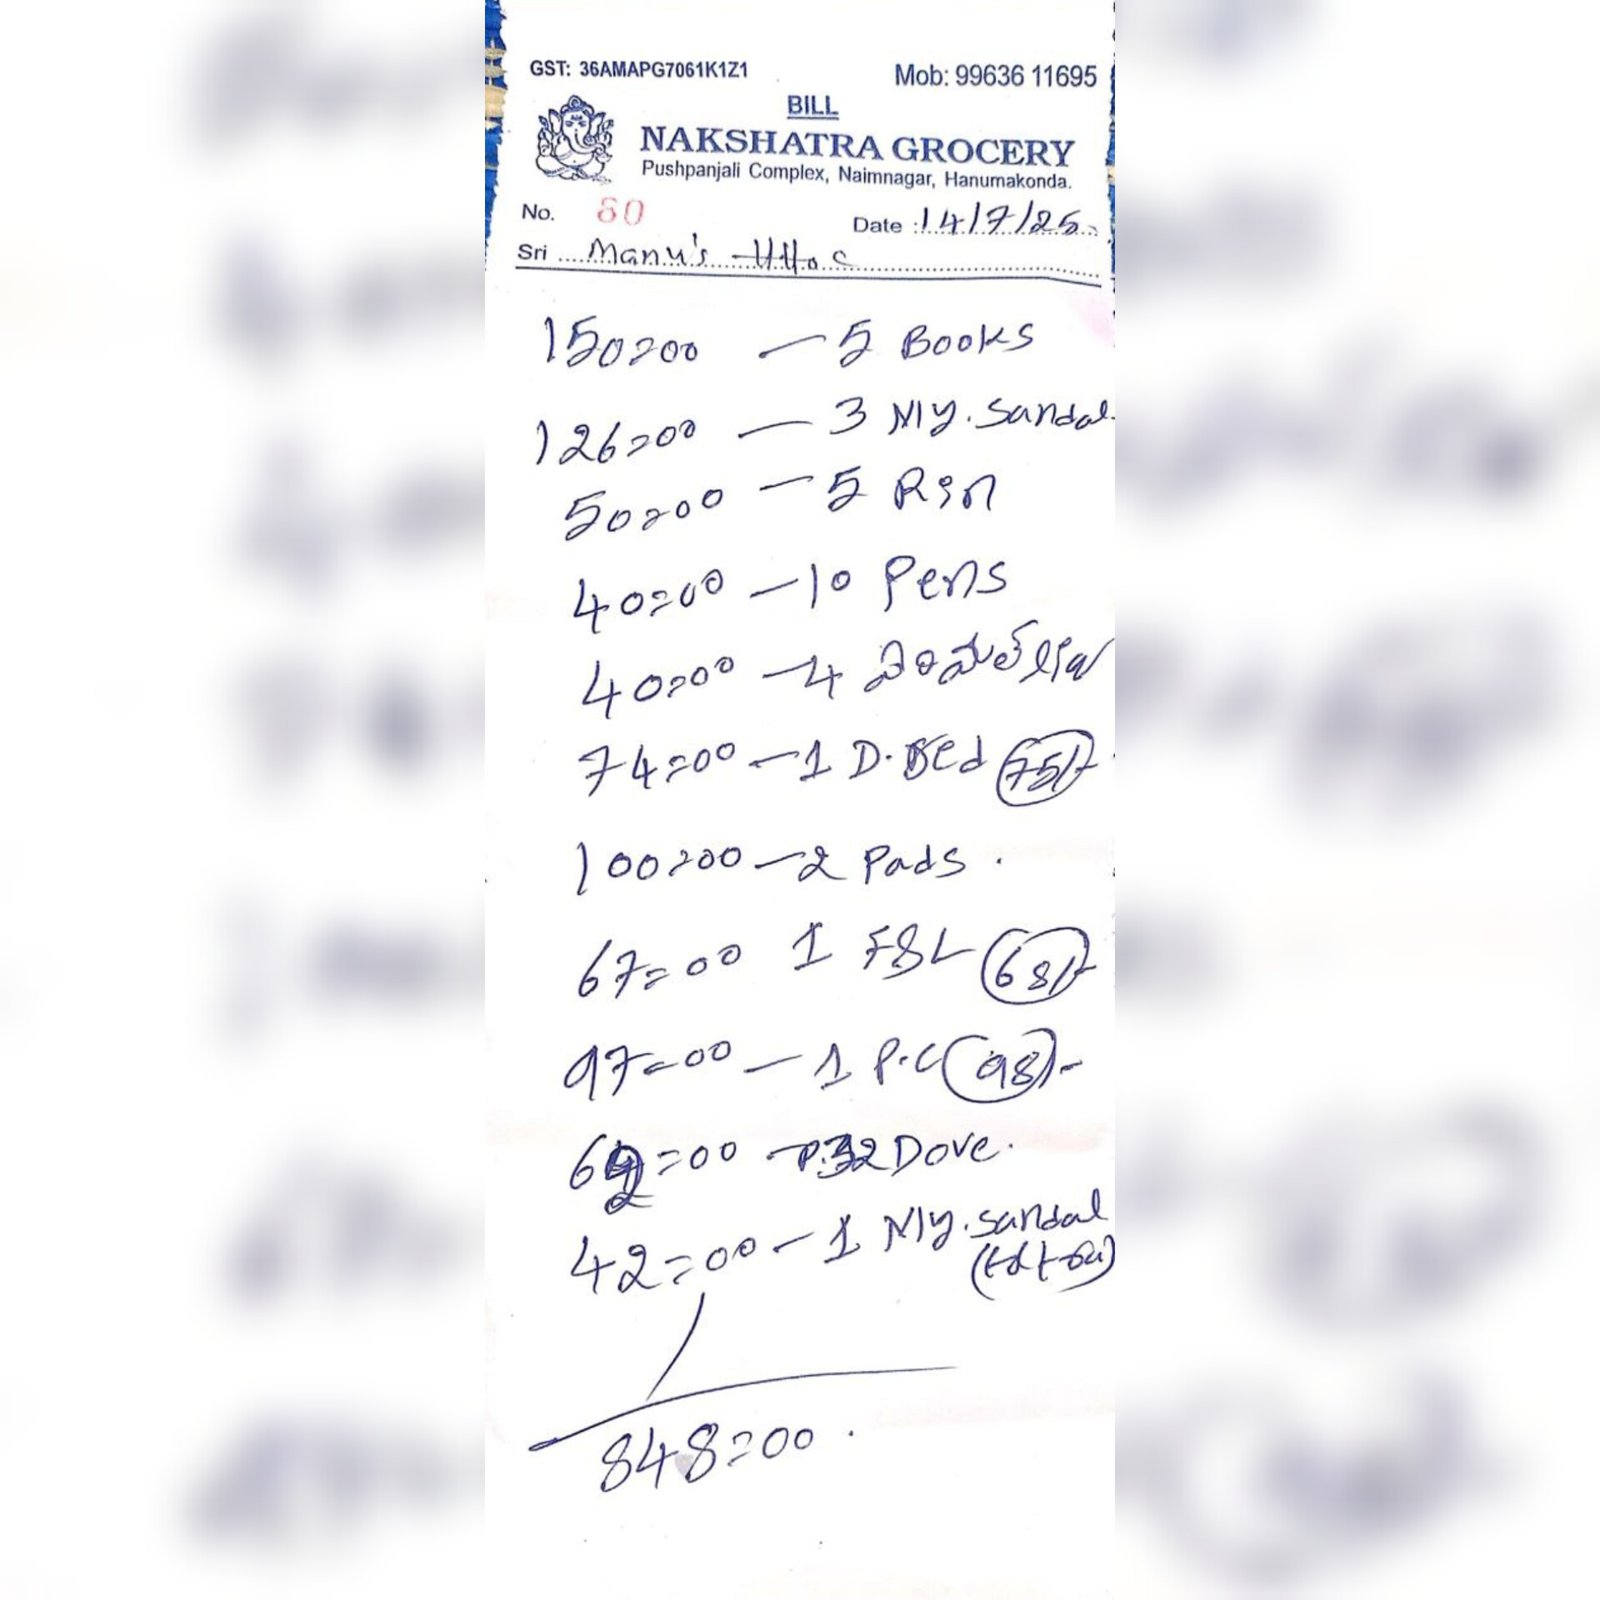 GST: 36AMAPG7061K1Z1
Mob: 99636 11695
BILL
NAKSHATRA GROCERY
Pushpanjali Complex, Naimnagar, Hanumakonda.
No. 60
Date : 14/7/25
Sri Manu's
150=00 — 5 Books
126=00 — 3 My. Sandal
50=00 — 5 Rin
40=00 — 10 Pens
40=00 — 4
74=00 — 1 D. Bed 75/-
100=00 — 2 Pads.
67=00 1 F&L 68/-
97=00 — 1 P.C 98/-
62=00 — Dove.
42=00 — 1 My. Sandal
848=00